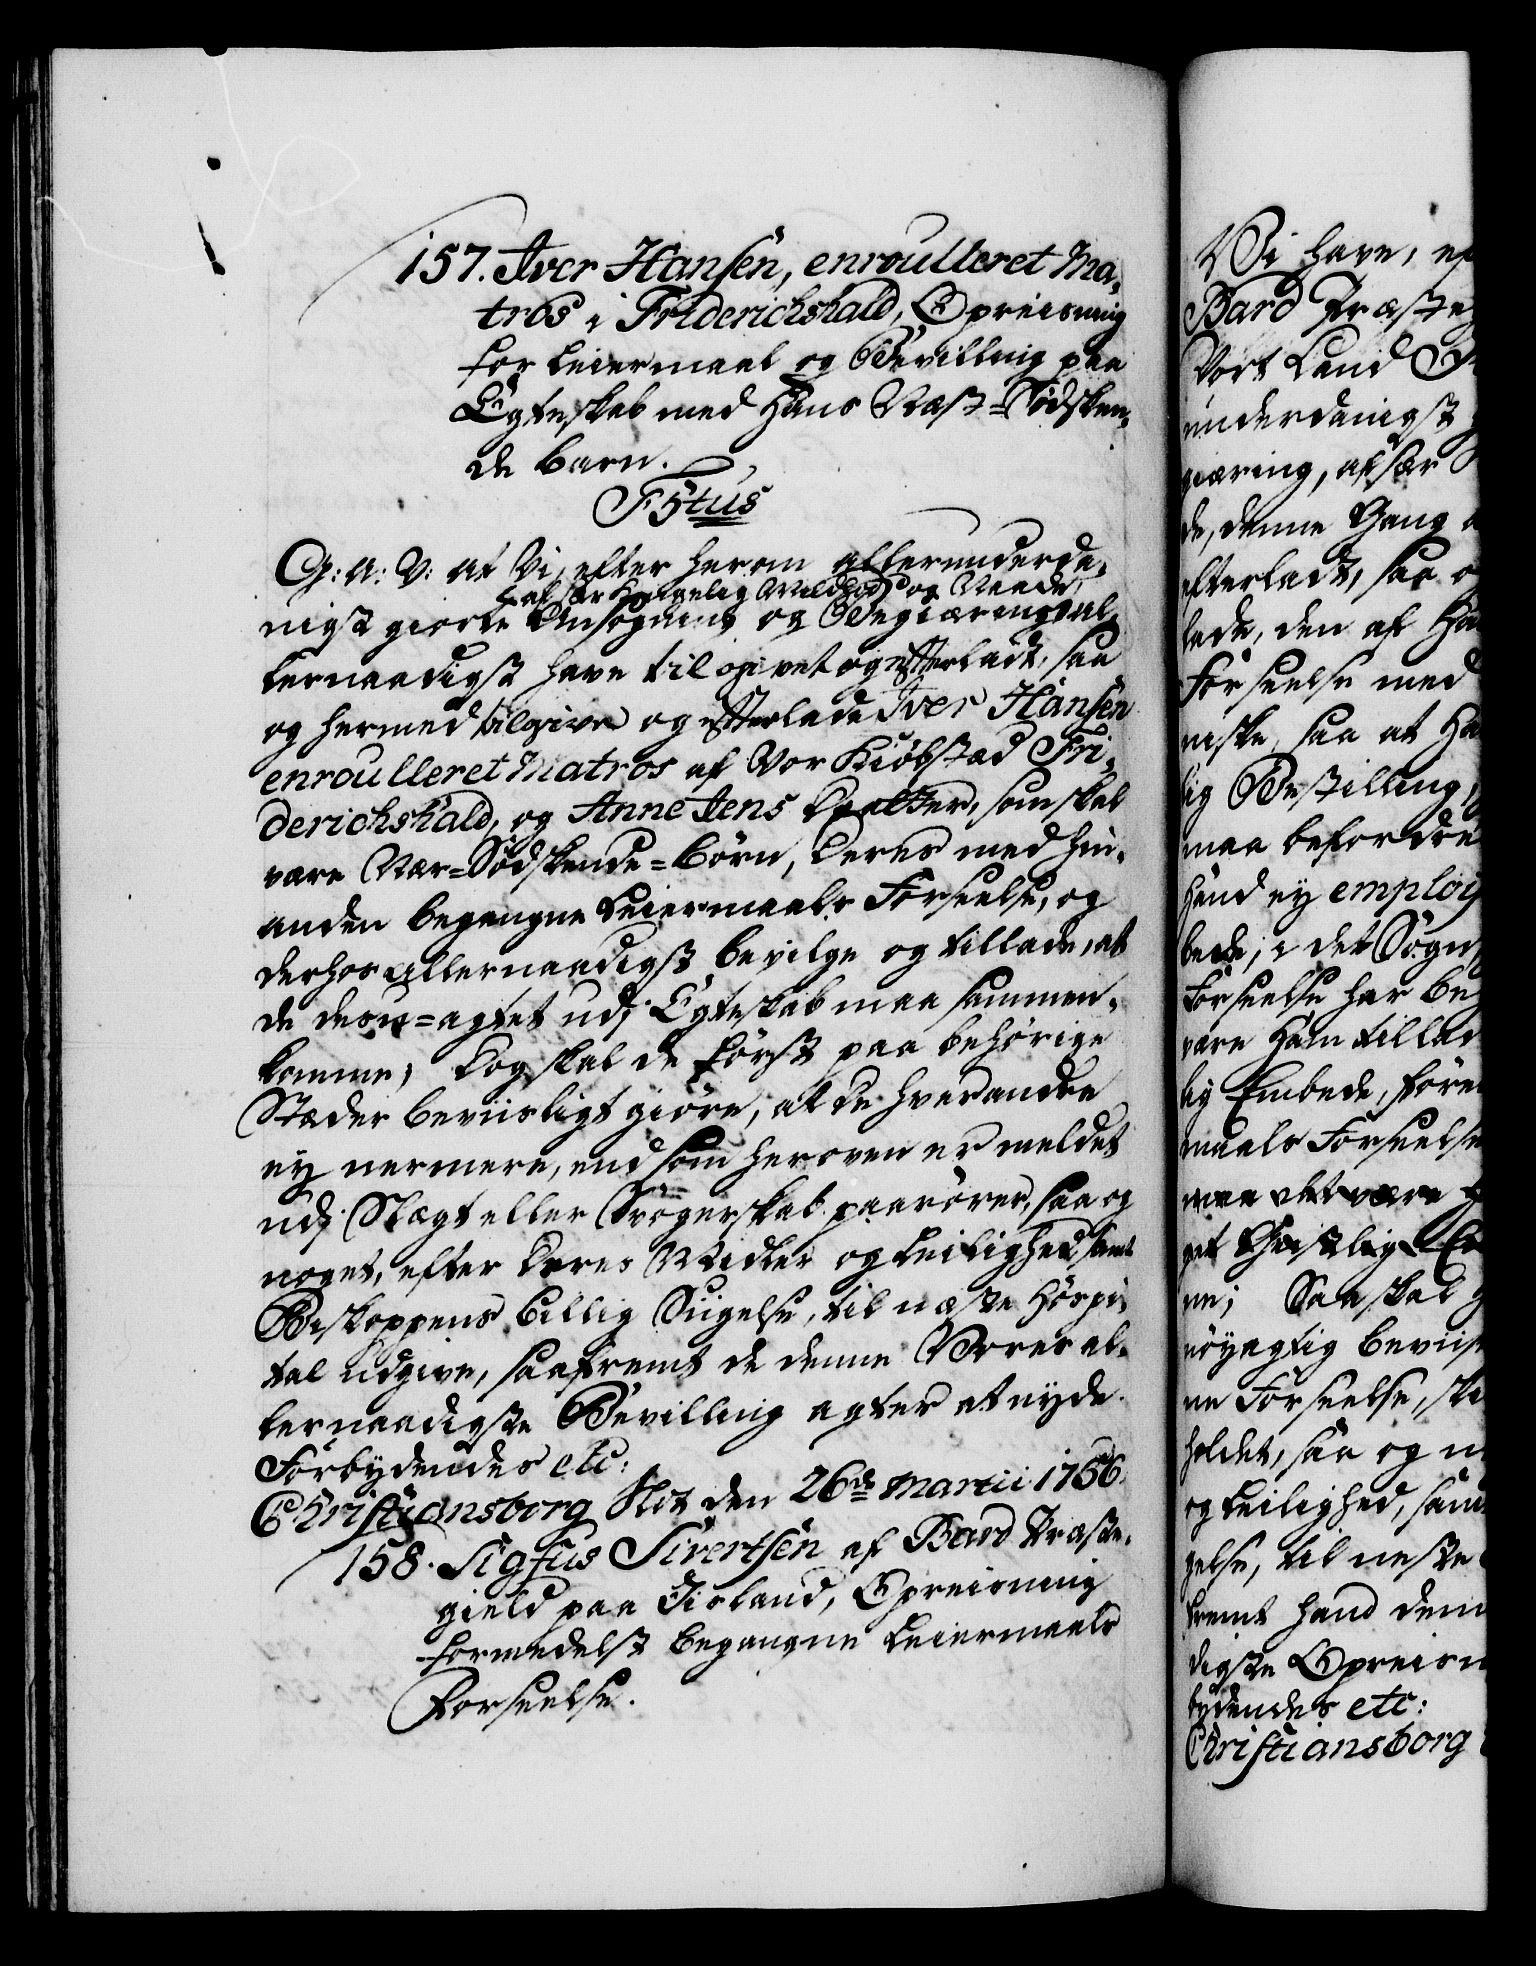 157. Iver Hansen, enroulleret Ma-
tros i Friderichshald, Opreisning
for Leiermaal og Bevilling paa
Egteskab med Hans Næst-Sødsken-
de barn.
F5tus
G: A: V: at Vi, efter herom allerunderda-
af sær Kongelig Mildhed og Naade,
nigst giorte Ansøgning og Begiæring al-
lernaadigst have tilgivet og efterladt, saa
og hermed tilgive og efterlade Iver Hansen
enroulleret Matros af Vor Kiøbstad Fri-
derichshald, og Anne Jens Daatter, som skal
være Nær-Sødskende-Børn, Deres med hin-
anden begangne Leiermaals Forseelse, og
derhos allernaadigst bevilge og tillade, at
de desu-agtet udj Egteskab maa sammen-
komme; Dog skal de først paa behørige
Stæder beviisligt giøre, at de hverandre
ey nermere, end som heroven er meldet
udj Slægt eller Svogerskab paarører, saa og
noget, efter Deres Midler og Leilighed samt
Biskoppens billig Sigelse, til næste Hospi-
tal udgive, saafremt de denne Vores al-
lernaadigste Bevilling agter at nyde.
Forbydendes etc:
Christiansborg Slot den 26de Martii 1756.
158. Sigfus Sivertsen af Bard Præste-
gield paa Island, Opreisning
formedelst begangne Leiermaals
Forseelse.
Vi have, ef
Bard Præsteg
Vort Land
underdanigst
giæring, af sær
de, denne Gang
efterladt, saa o
lade, den af Ha
Forseelse med
niske, saa at Ha
lig Bestilling,
maa befordre
Hand ey employ
bede, i det Sogn,
Forseelse har be
være Ham tillad
lig Embede, føre
maals Forseelse
maa vært være
get Geistlig Em
ne; Saa skal
nøyagtig beviis
ne Forseelse, ski
holdet, saa og n
og Leilighed, sam
gelse, til neste
fremt hand denn
digste Opreisn
bydendes etc:
Christiansborg